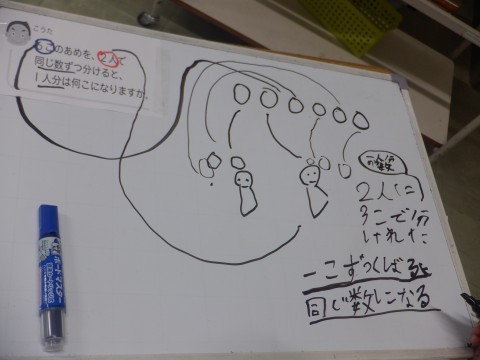 こうた
6このあめを、2人で
同じ数ずつ分けると、
1人分は何こになりますか。
一人分の数
2人に
3こで分
けれた
一こずつくばると
同じ数になる
ボードマスター